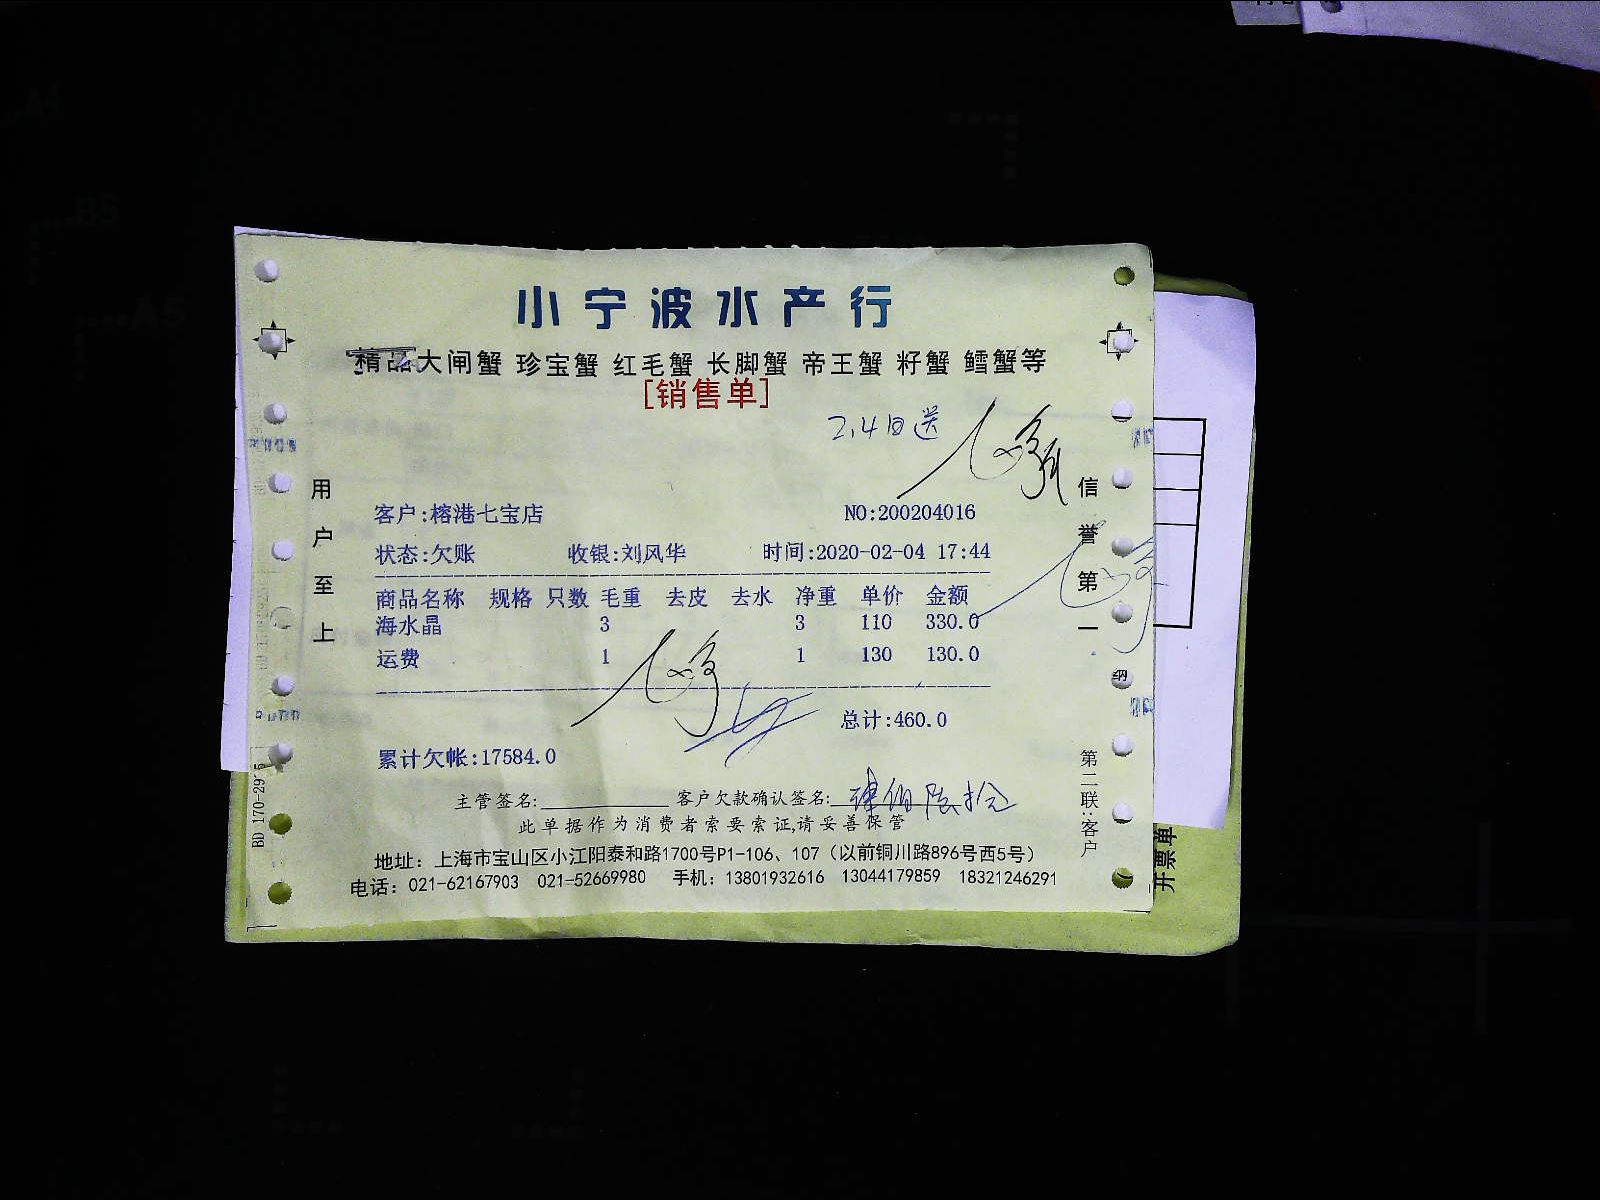 小宁波水产行
精品大闸蟹 珍宝蟹 红毛蟹 长脚蟹 帝王蟹 籽蟹 鳕蟹等
[销售单]
2.4日送
用户至上
信誉第一
客户:榕港七宝店 NO:200204016
状态:欠账 收银:刘风华 时间:2020-02-04 17:44
商品名称 规格 只数 毛重 去皮 去水 净重 单价 金额
海水晶 3 3 110 330.0
运费 1 1 130 130.0
总计:460.0
累计欠帐:17584.0
主管签名: 客户欠款确认签名: 肆佰陆拾元
此单据作为消费者索要索证,请妥善保管
地址：上海市宝山区小江阳泰和路1700号P1-106、107（以前铜川路896号西5号）
电话：021-62167903 021-52669980 手机：13801932616 13044179859 18321246291
第二联:客户
BD 170-295
开票单
纳
A4
B5
A5